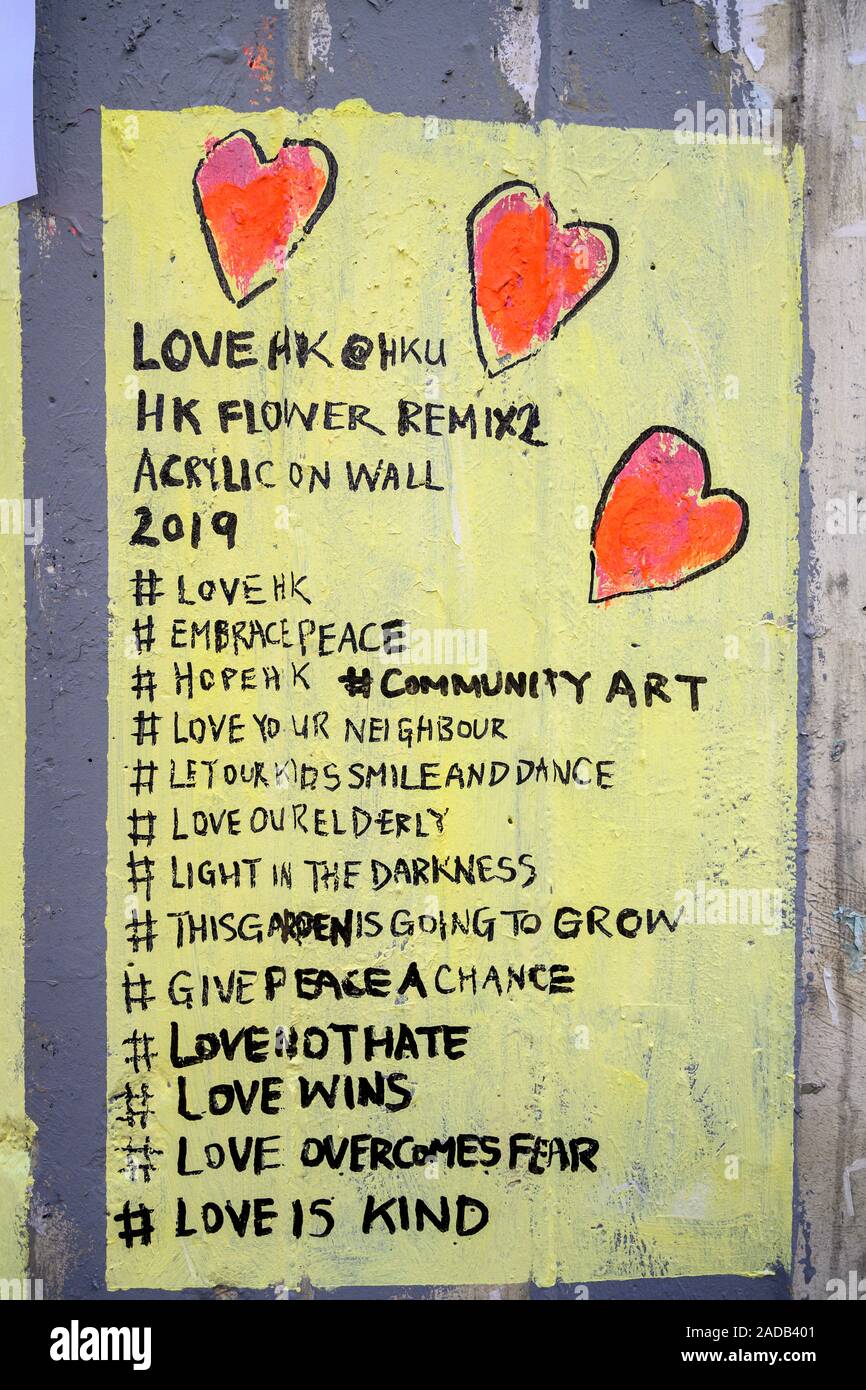 LOVE HK @HKU
HK FLOWER REMIX2
ACRYLIC ON WALL
2019
# LOVE HK
# EMBRACEPEACE
# HOPE HK #COMMUNITY ART
# LOVE YOUR NEIGHBOUR
# LET OUR KIDS SMILE AND DANCE
# LOVE OUR ELDERLY
# LIGHT IN THE DARKNESS
# THISGARDENISGOING TO GROW
# GIVE PEACE A CHANCE
# LOVENOTHATE
# LOVE WINS
# LOVE OVERCOMES FEAR
# LOVE IS KIND
alamy
Image ID: 2ADB401
www.alamy.com